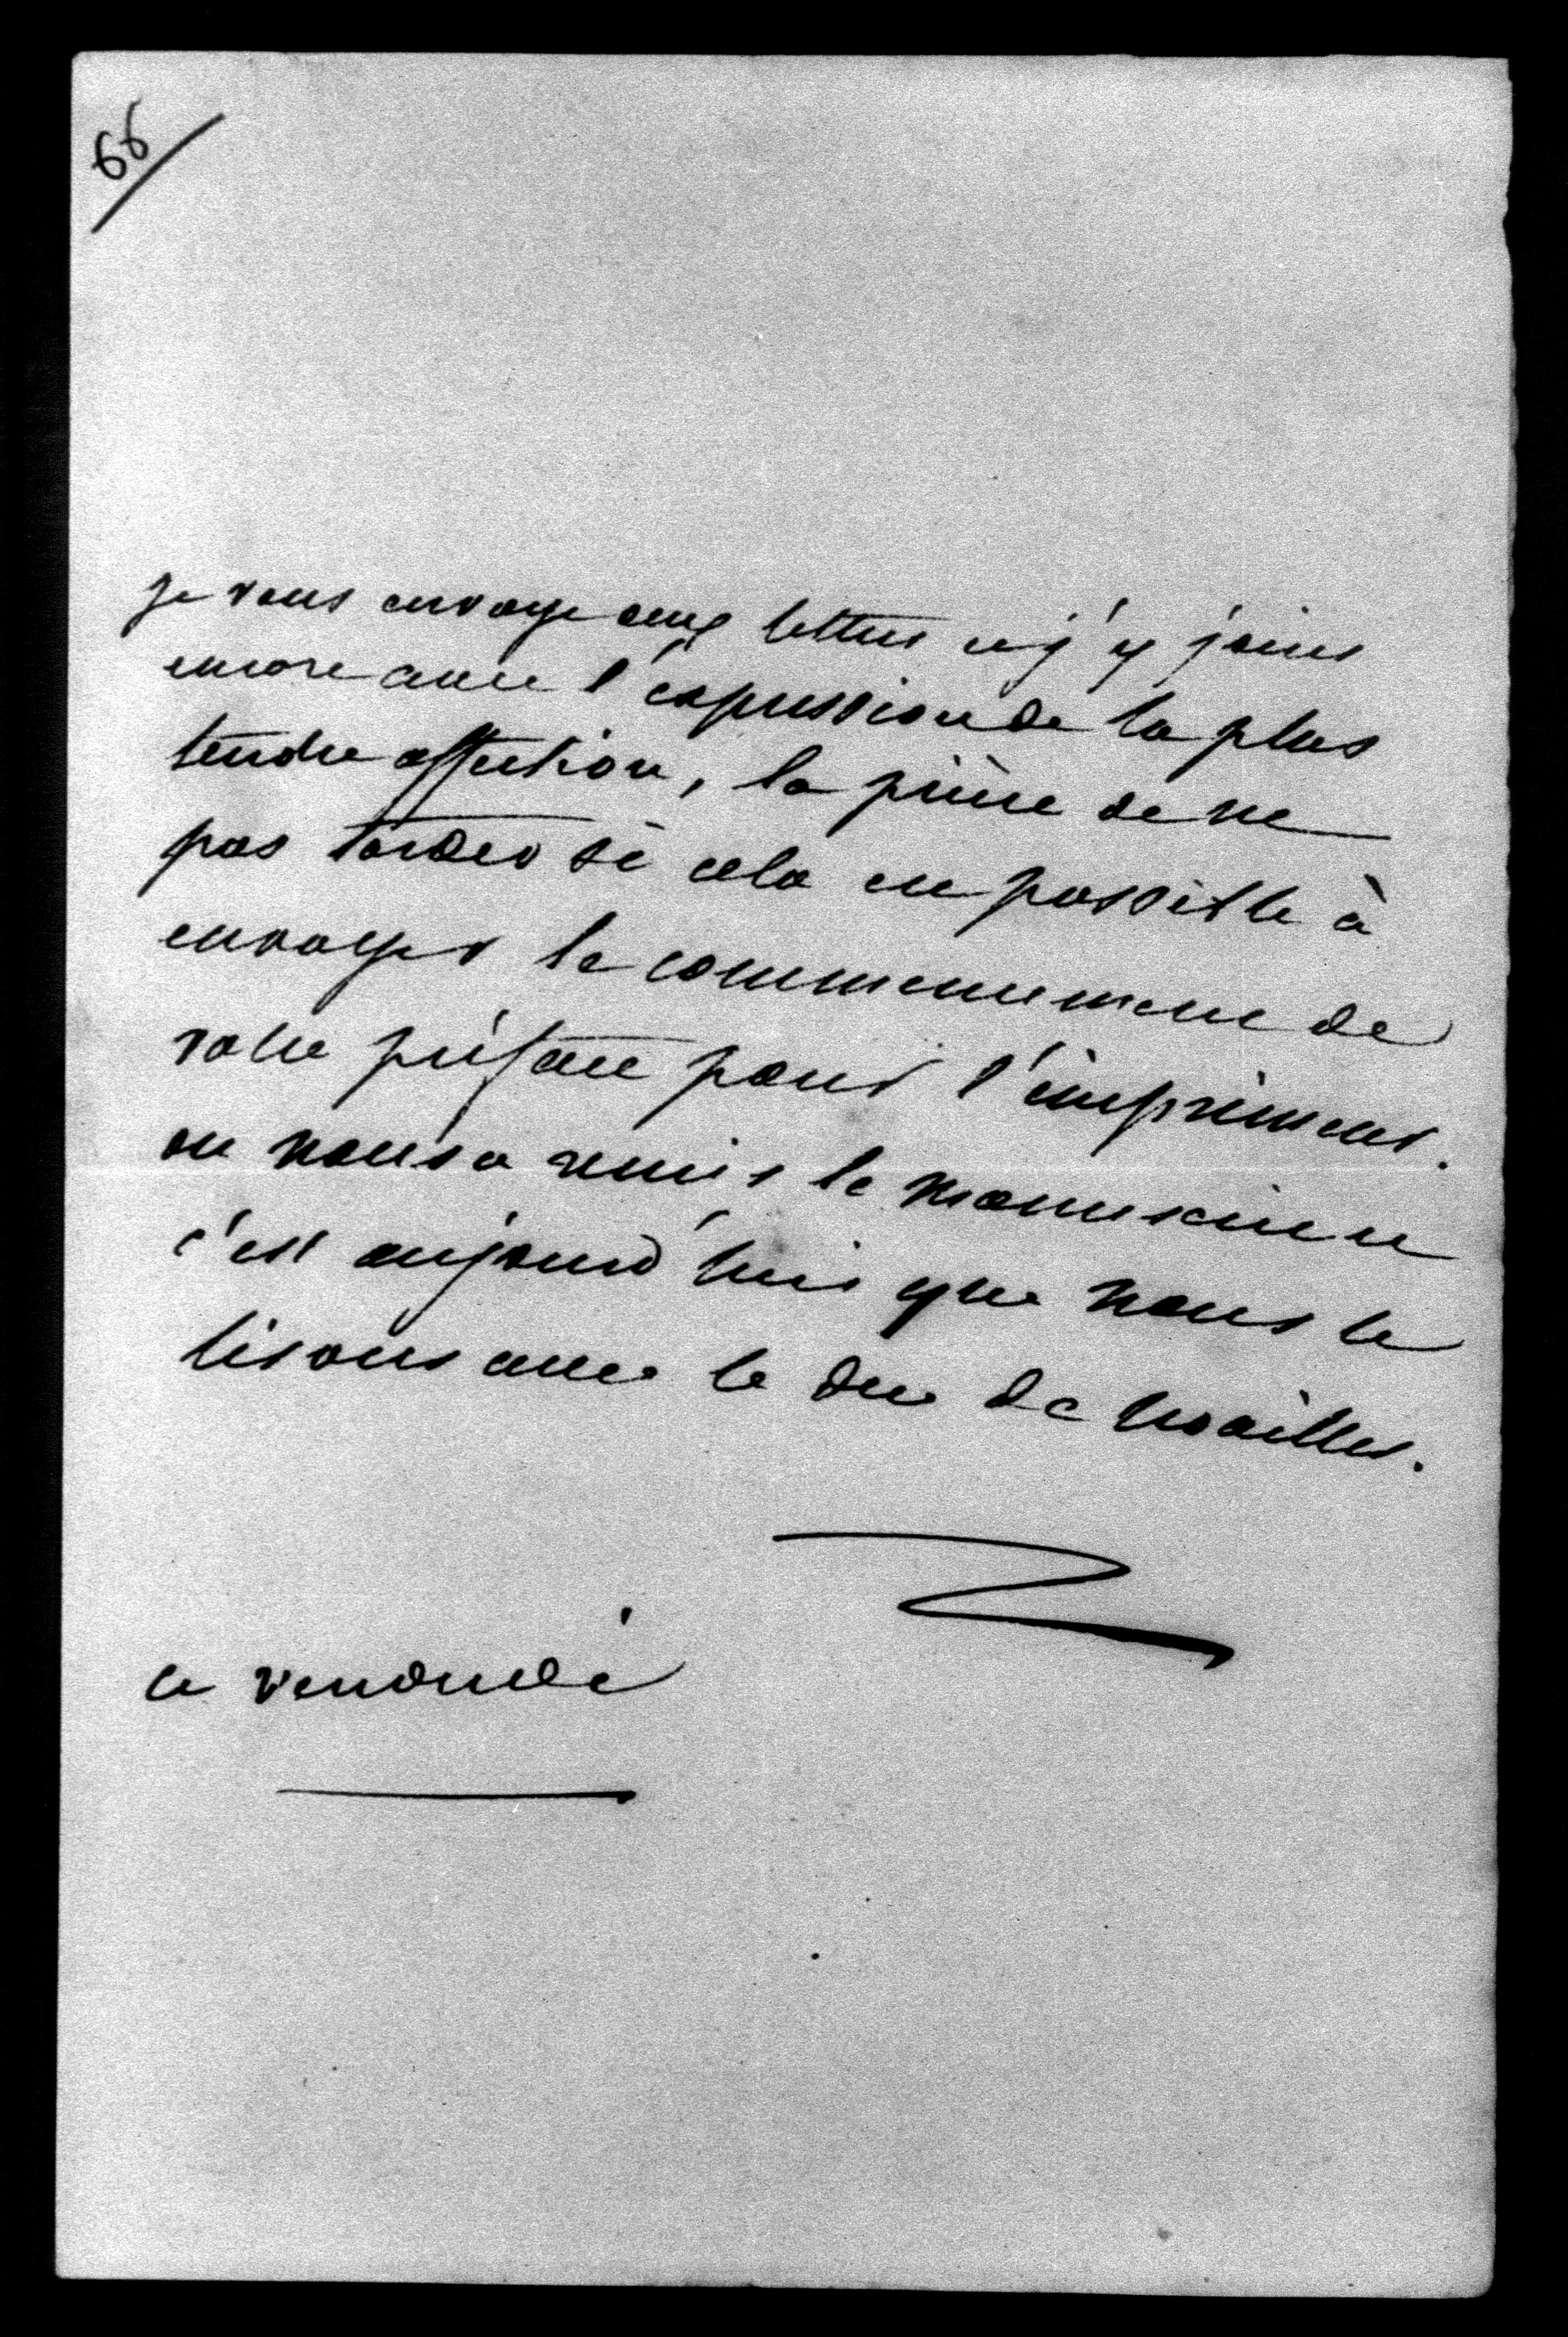 66
je vous envoye deux lettres et j'y joins
encore avec l'expression de la plus
tendre affection, la prière de ne
pas tarder si cela est possible à
envoyer le commencement de
votre préface pour l'imprimeur.
on nous a remis le manuscrit et
c'est aujourd'hui que nous le
lisons avec le duc de Noailles.
ce vendredi